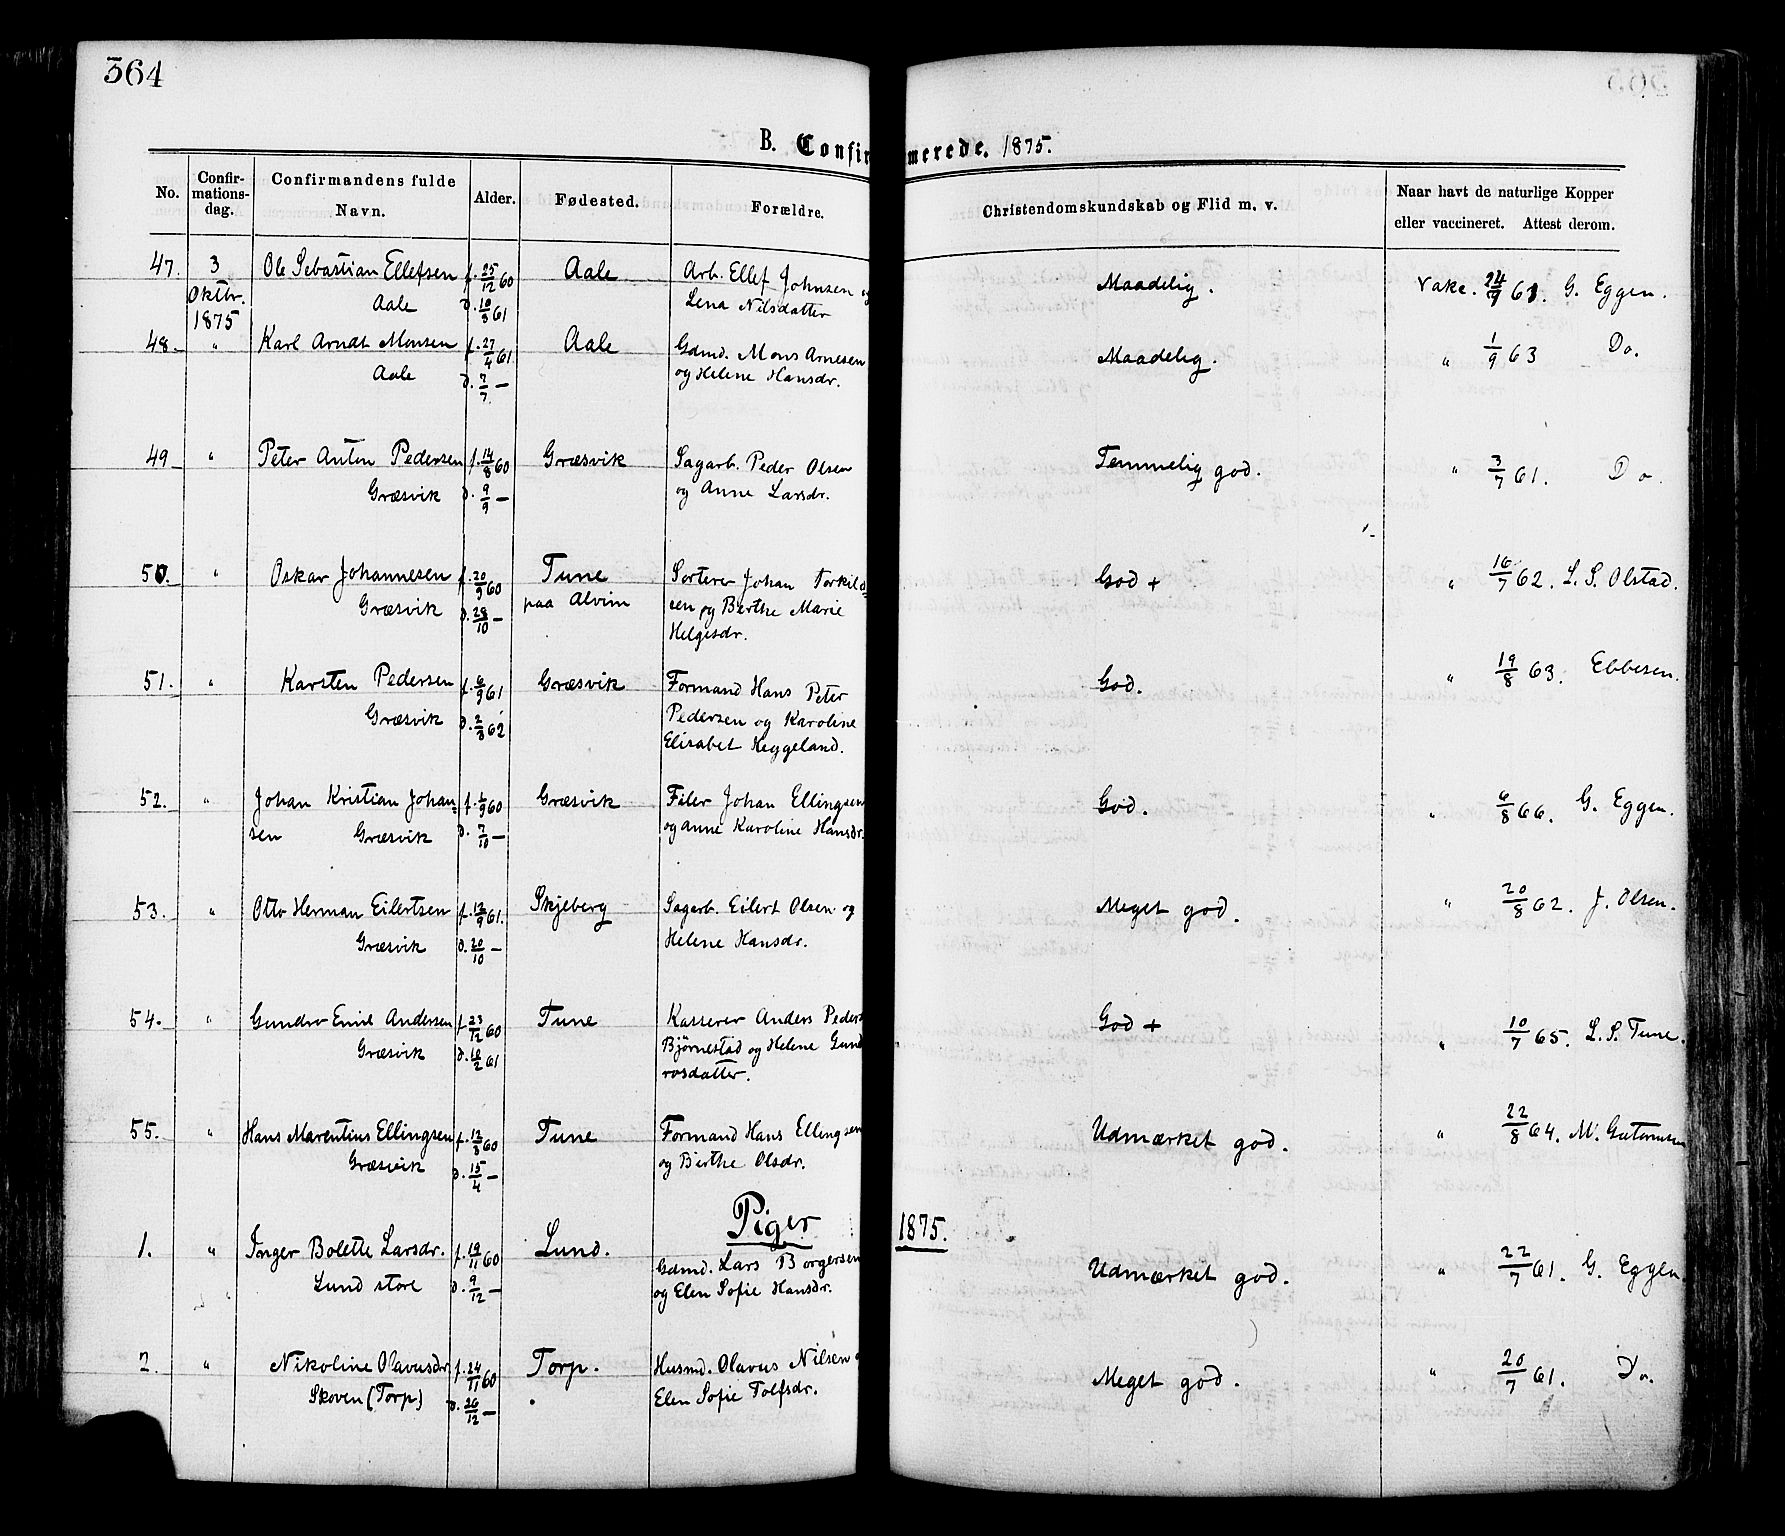 364
B. Confirmerede. 1875.
No. Confirmations-dag. Confirmandens fulde Navn. Alder. Fødested. Forældre. Christendomskundskab og Flid m. v. Naar havt de naturlige Kopper eller vaccineret. Attest derom.
47. 3 Ole Sebastian Ellefsen f. 25/12 60 Aale Arb. Ellef Johnsen og Maadelig. Vakc. 24/9 61. G. Eggen.
Oktbr. Aale d. 10/3 61 Lena Nilsdatter
1875
48. " Karl Arndt Monsen f. 27/4 61 Aale Gdmd. Mons Arnesen Maadelig. " 1/9 63 Do.
Aale d. 7/7 — og Helene Hansdr.
49 " Peter Anton Pedersen f. 14/8 60 Græsvik Sagarb. Peder Olsen Temmelig god. " 3/7 61. Do.
Græsvik d. 9/9 — og Anne Larsdr.
50. " Oskar Johannesen f. 20/9 60 Tune Sorterer Johan Torkild= God + " 16/7 62. L. S. Olstad.
Græsvik d. 28/10 — paa Alvim sen og Berthe Marie
Helgesdr.
51. " Karsten Pedersen f. 6/9 61 Græsvik Formand Hans Peter God. " 19/8 63. Ebbesen.
Græsvik d. 2/3 62 Pedersen og Karoline
Elisabet Heggeland.
52. " Johan Kristian Johan= f. 1/9 60 Græsvik Filer Johan Ellingsen God. " 6/8 66. G. Eggen.
sen Græsvik d. 7/10 — og Anne Karoline Hansdr.
53. " Otto Herman Eilertsen f. 12/9 61. Skjeberg Sagarb. Eilert Olsen og Meget god. " 20/8 62. J. Olsen.
Græsvik d. 20/10 — Helene Hansdr.
54. " Gundro Emil Andersen f. 23/12 60 Tune Kasserer Anders Peders God + " 10/7 65. L. S. Tune.
Græsvik d. 10/2 61 Bjørnestad og Helene Gund
rosdatter.
55. " Hans Marentius Ellingsen f. 12/8 60 Tune Formand Hans Ellingsen Udmærket god. " 22/8 64. M.
Græsvik d. 15/4 — og Berthe Olsdr.
Piger 1875.
1. " Inger Bolette Larsdr. f. 19/11 60 Lund. Gdmd. Lars Borgersen Udmærket god. " 22/7 61. G. Eggen.
Lund store d. 9/12 — og Elen Sofie Hansdr.
2. " Nikoline Olavusdr f. 24/11 60 Torp. Husmd. Olavus Nilsen Meget god. " 20/7 61. Do.
Skoven (Torp) d. 26/12 — Elen Sofie Tolfsdr.